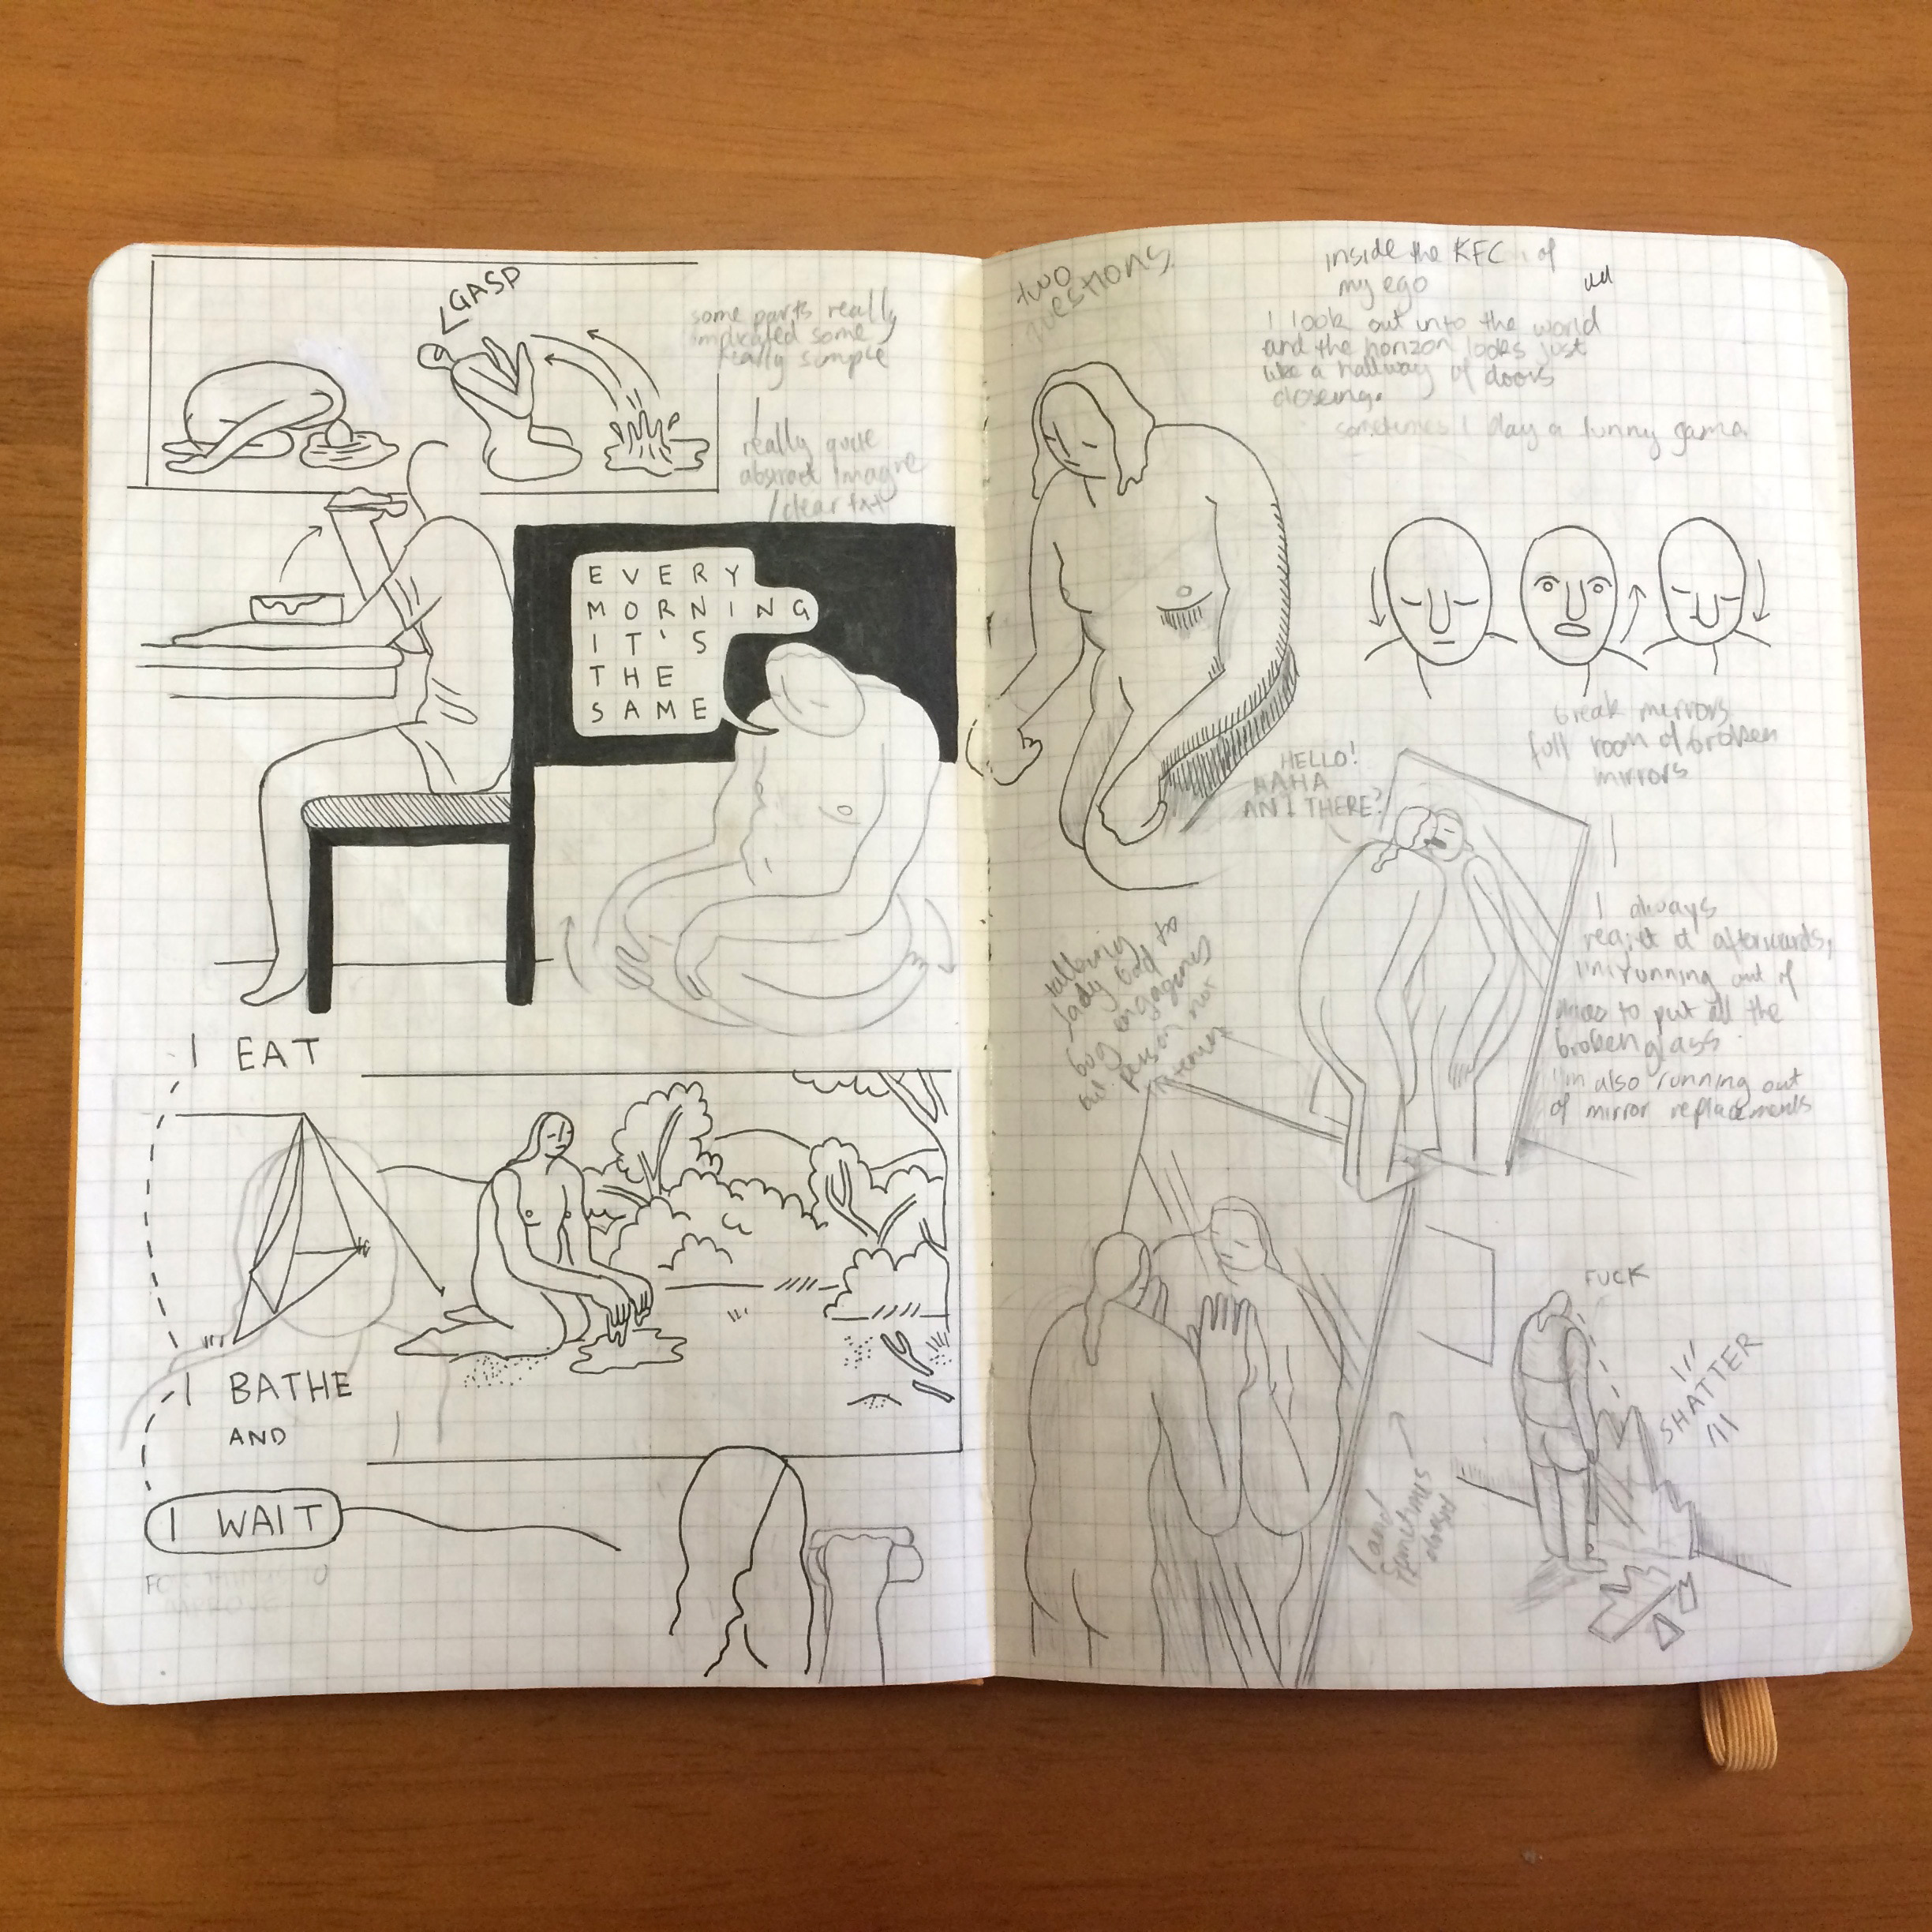 GASP
some parts really
some
really simple
really quite
abstract image
/clear txt
EVERY
MORNING
IT'S
THE
SAME
I EAT
I BATHE
AND
I WAIT
two
questions
inside the KFC of
my ego
I look out into the world
and the horizon looks just
like a hallway of doors
closeing.
sometimes I play a funny game
break mirrors
full room of broken
mirrors
HELLO!
HAHA
AN I THERE?
I always
regret it afterwards,
I'm running out of
to put all the
broken glass
I'm also running out
of mirror replacements
talking
lady god to
bug engagines
person not
FUCK
SHATTER
(and
sometimes